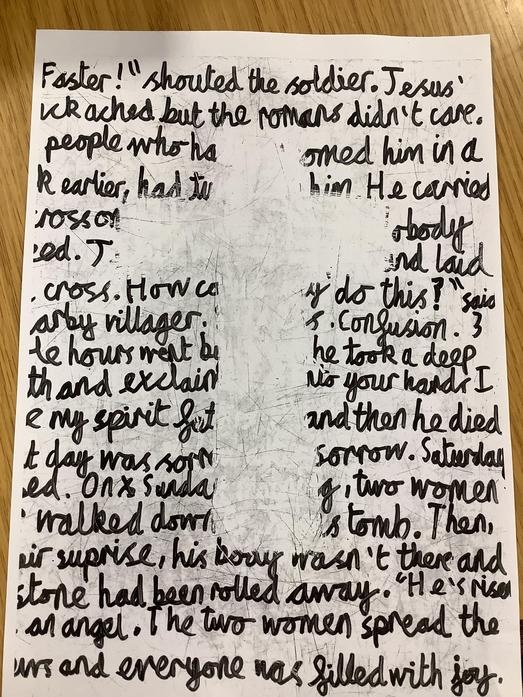 Faster!" shouted the soldier. Jesus'
ached but the romans didn't care.
people who omed him in a
earlier, had him He carried
obody
ed. and laid
cross. How do this?" said
arby villager. s. Confusion. 3
hours went he took a deep
th and exclaim your hands I
my spirit and then he died
t day was sorrow. Saturday
ed. On Sunda , two women
walked down s tomb. Then,
suprise, his body wasn't there and
stone had been rolled away. "He's risen
an angel. The two women spread the
and everyone was filled with joy.